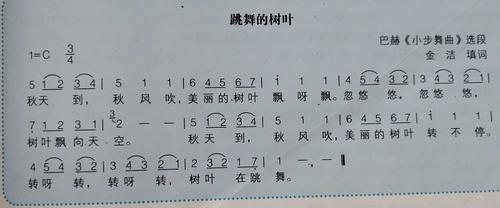 跳舞的树叶
巴赫《小步舞曲》选段
1=C 3/4
金洁 填词
5 1 2 3 4 | 5 1 1 | 6 4 5 6 7 | i 1 1 | 4 5 4 3 2 | 3 4 3 2 1 |
秋天 到， 秋 风 吹，美丽的树叶 飘 呀 飘。忽悠 悠。 忽悠 悠，
7 1 2 3 1 | 2 — — | 5 1 2 3 4 | 5 1 1 | 6 4 5 6 7 | i 1 1 |
树叶飘向天 空。 秋天 到， 秋 风 吹，美丽的树叶 转 不 停。
4 5 4 3 2 | 3 4 3 2 1 | 2 3 2 1 7 | 1 — — ‖
转呀 转， 转呀 转， 树叶 在跳 舞。